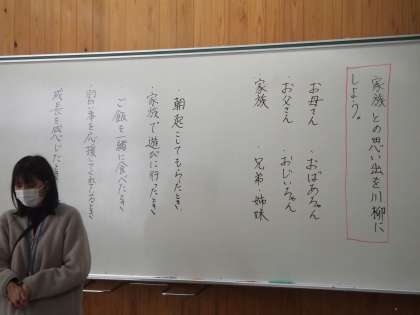 家族との思い出を川柳に
しよう。
お母さん ・おばあちゃん
・お父さん ・おじいちゃん
家族 ・兄弟・姉妹
・朝起こしてもらたとき
・家族で遊びに行ったとき
ご飯を一緒に食べたとき
習い事を応援してくれているとき
成長を感じたとき